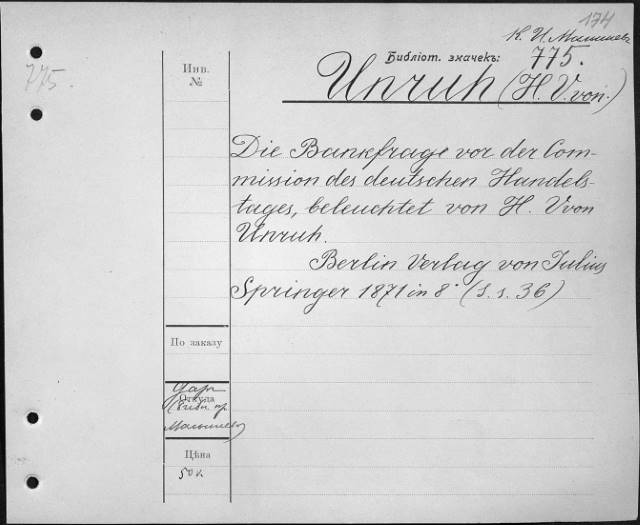 174
К. И. Малышев
775.
Библіот. значекъ:
775.
Инв.
№
Unruh (H. V. von.)
Die Bankfrage vor der Com-
mission des deutschen Handels-
tages, beleuchtet von H. V von
Unruh.
Berlin Verlag von Julius
Springer 1871 in 8° (S. s. 36)
По заказу
Откуда
Дар
Малышева
Цѣна
50 к